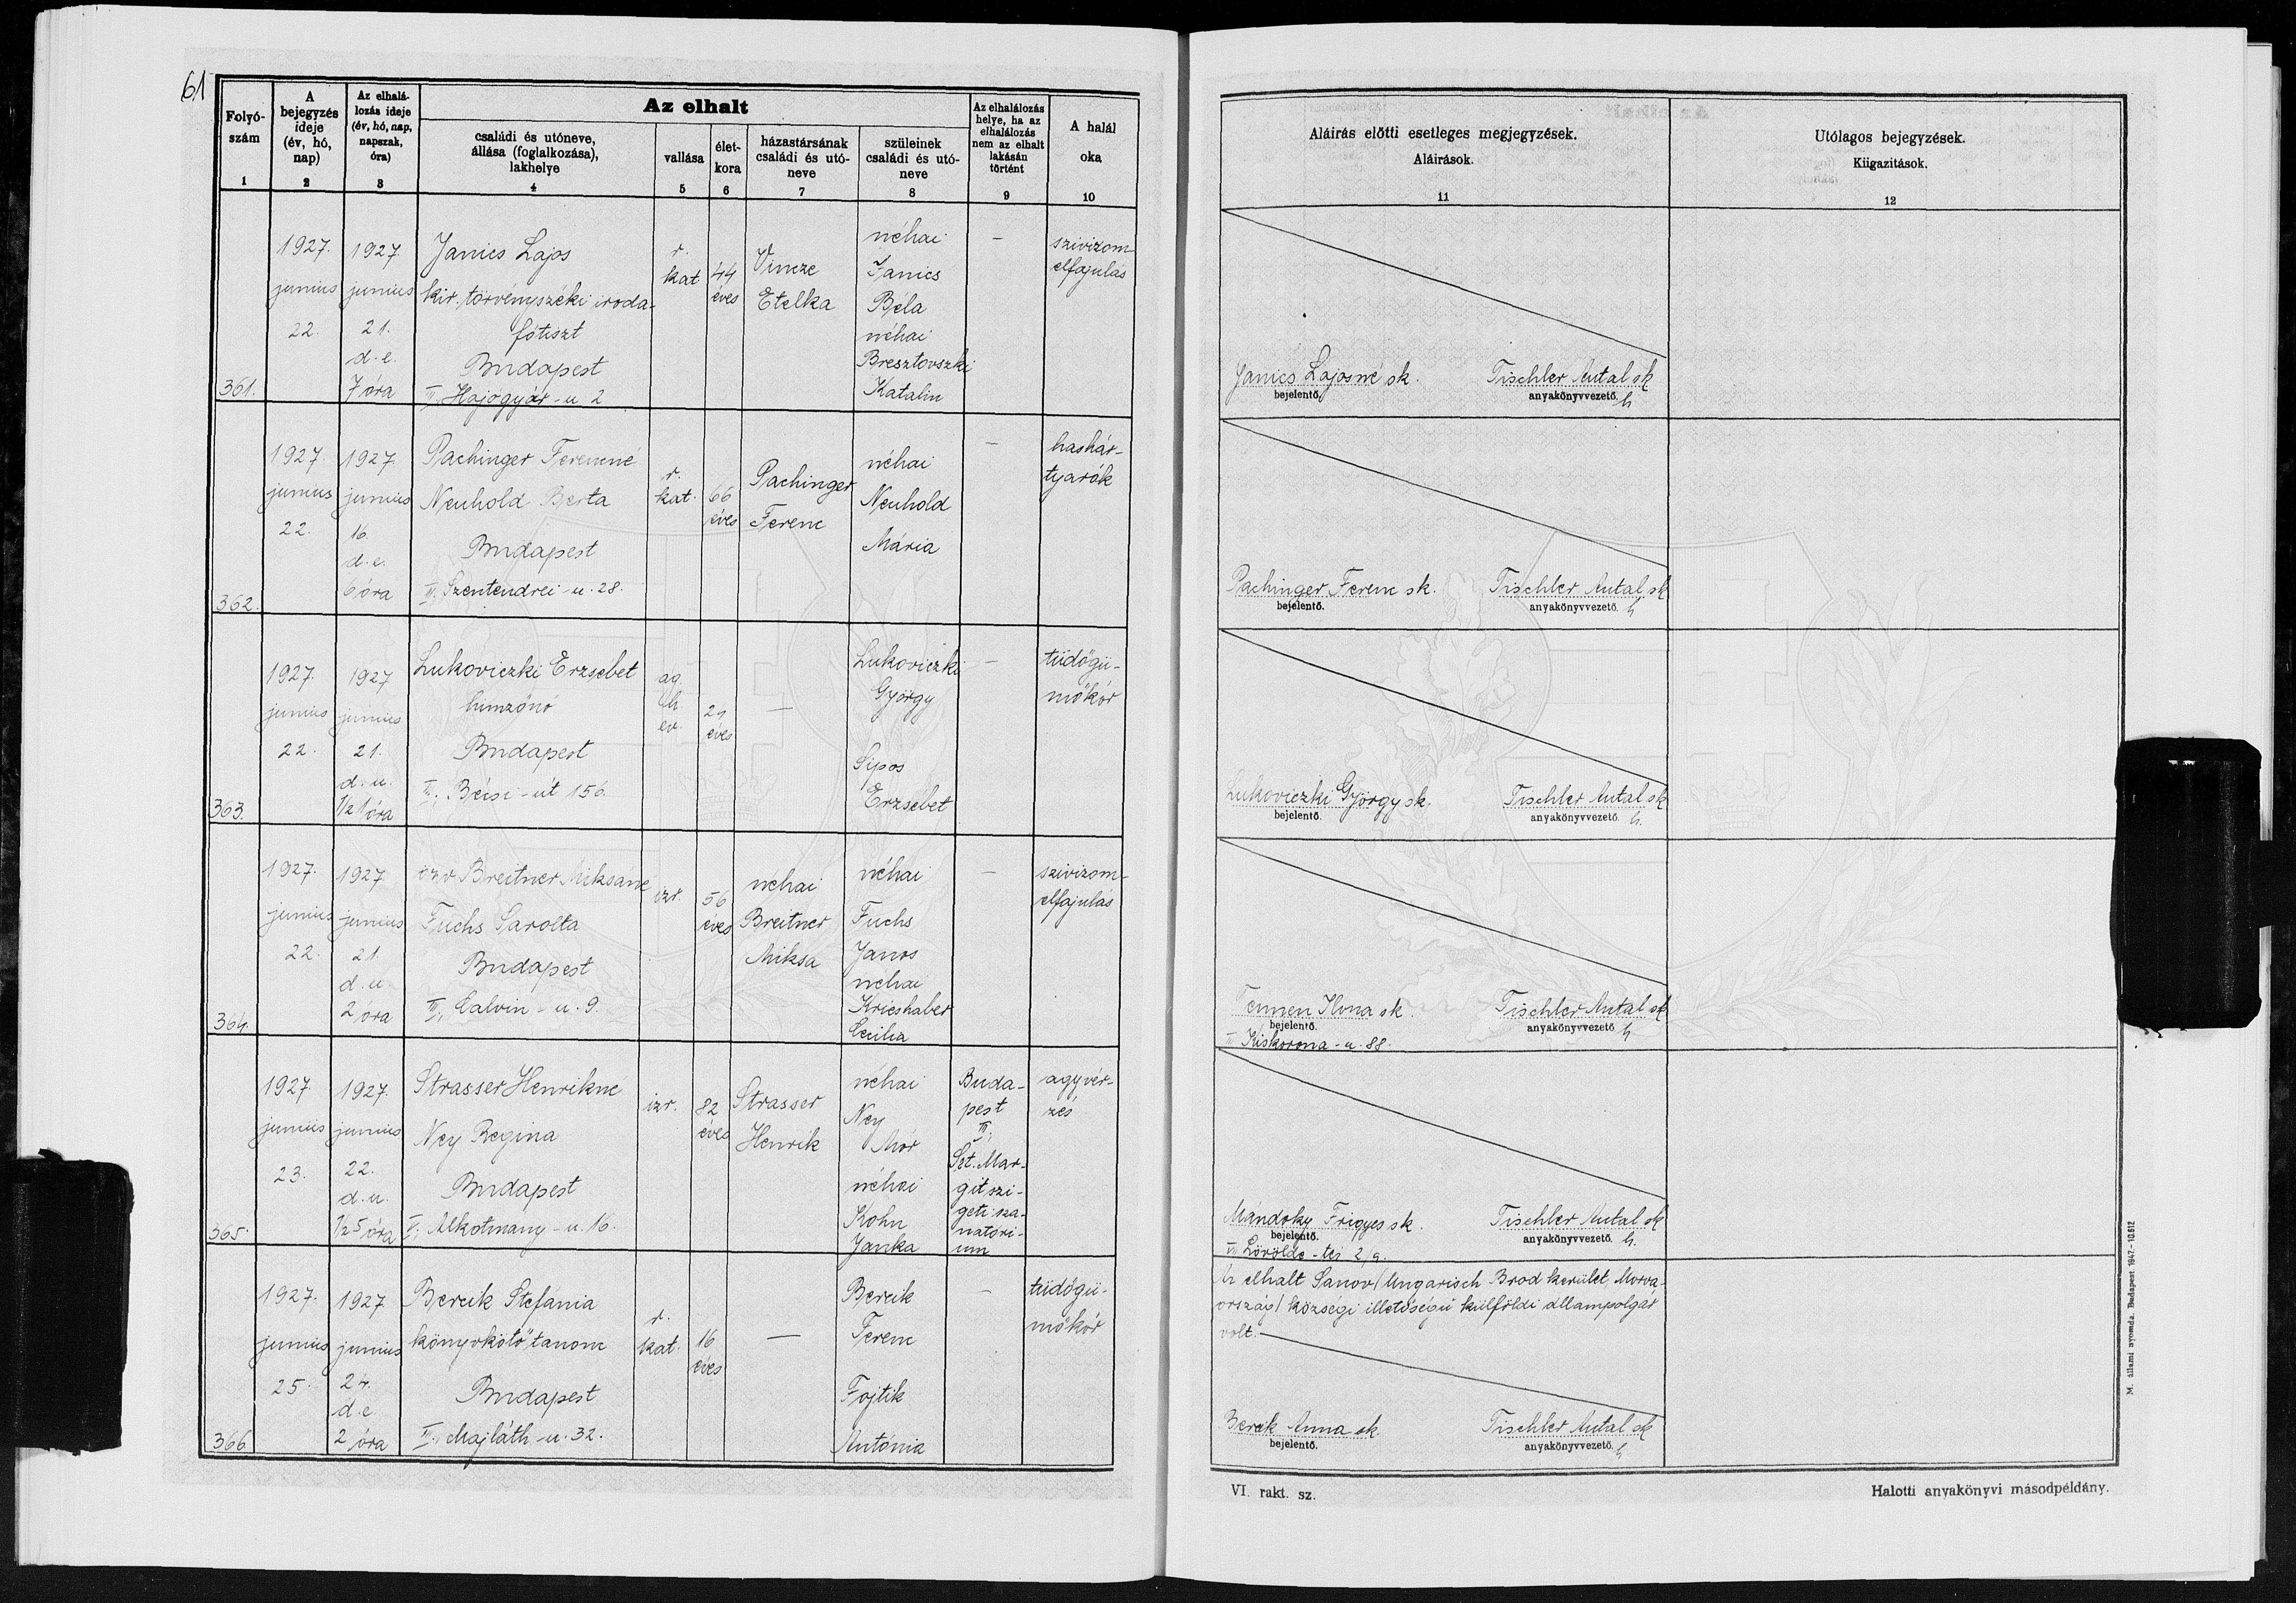 61
Folyó-
szám
1
A
bejegyzés
ideje
(év, hó,
nap)
2
Az elhalá-
lozás ideje
(év, hó, nap,
napszak,
óra)
3
Az elhalt
családi és utóneve,
állása (foglalkozása),
lakhelye
4
vallása
5
élet-
kora
6
házastársának
családi és utó-
neve
7
szüleinek
családi és utó-
neve
8
Az elhalálozás
helye, ha az
elhalálozás
nem az elhalt
lakásán
történt
9
A halál
oka
10
Aláírás előtti esetleges megjegyzések.
Aláírások.
11
Utólagos bejegyzések.
Kiigazítások.
12
361.
1927.
junius
22.
1927
junius
21.
d.e.
7 óra
Janics Lajos
kir. törvényszéki iroda-
főtiszt
Budapest
III, Hajógyár-u 2
r.
kat
44
éves
Vincze
Etelka
néhai
Janics
Béla
néhai
Bresztovszki
Katalin
—
szivizom-
elfajulás
Janics Lajosné sk.
bejelentő.
Tischler Antal sk
anyakönyvvezető. h
362
1927.
junius
22.
1927.
junius
16.
d.e.
6 óra
Pachinger Ferencné
Neuhold Berta
Budapest
III, Szentendrei-u. 28.
r.
kat.
66
éves
Pachinger
Ferenc
néhai
Neuhold
Mária
—
hashár-
tyarák
Pachinger Ferenc sk.
bejelentő.
Tischler Antal sk
anyakönyvvezető. h
363.
1927.
junius
22.
1927
junius
21.
d.u.
1/2 1 óra
Lukoviczki Erzsebet
himzőnő
Budapest
III, Bécsi-út 156.
ag.
h
ev.
21
éves
—
Lukoviczki
György
Sipos
Erzsebet
—
tüdőgü-
mőkór
Lukoviczki György sk.
bejelentő.
Tischler Antal sk
anyakönyvvezető. h.
364.
1927.
junius
22.
1927.
junius
21.
d.u.
2 óra
özv Breitner Miksane
Fuchs Sarolta
Budapest
III, Calvin-u. 9.
izr.
56
éves
nehai
Breitner
Miksa
néhai
Fuchs
Janos
nehai
Krieshaber
Cecilia
—
szivizom-
elfajulás
Ilona sk.
bejelentő.
Tischler Antal sk
anyakönyvvezető. h
III Kiskorona-u. 88.
365.
1927.
junius
23.
1927.
junius
22.
d.u.
1/2 5 óra
Strasser Henrikne
Ney Regina
Budapest
V, Alkotmany-u. 16.
izr.
82
éves
Strasser
Henrik
nehai
Ney
Mór
néhai
Kohn
Janka
Buda-
pest
III,
Szt. Mar-
gitszi-
geti sza-
natóri-
um
agyvér-
zés
Mándoky Frigyes sk.
bejelentő.
Tischler Antal sk
anyakönyvvezető. h.
VI, Lövölde-tér 2/a.
366
1927.
junius
25.
1927
junius
24.
d.e.
2 óra
Bercik Stefania
könyvkötő tanonc
Budapest
III, Majláth-u. 32.
r.
kat.
16
éves
—
Bercik
Ferenc
Fojtik
Antónia
—
tüdőgü-
mőkór
Az elhalt Sanov / Ungarisch Brod kerület Morva-
ország / községi illetőségü külföldi allampolgár
volt.—
Bercik Anna sk
bejelentő.
Tischler Antal sk
anyakönyvvezető. h
VI. rakt. sz.
Halotti anyakönyvi másodpéldány.
M. állami nyomda. Budapest 1947-10.612